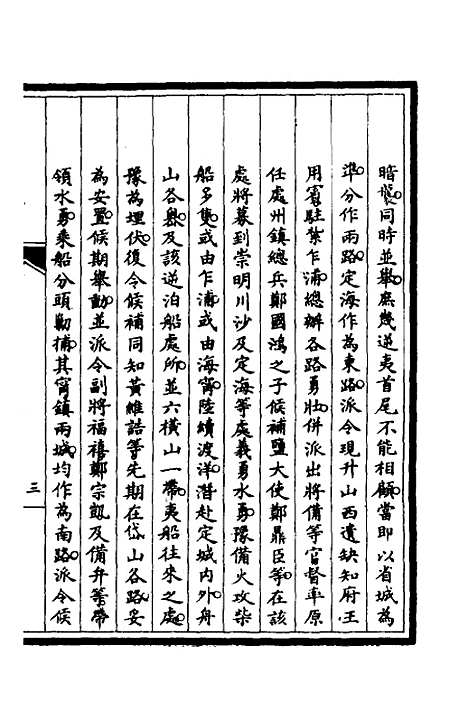 暗襲同時並舉庶幾逆夷首尾不能相顧當即以省城為
準分作兩路定海作為東路派令現升山西遺缺知府王
用賓駐紮乍浦總辦各路勇壯併派出將備等官督率原
任處州鎮總兵鄭國鴻之子候補鹽大使鄭鼎臣等在該
處將募到崇明川沙及定海等處義勇水勇豫備火攻柴
船多隻或由乍浦或由海甯陸續渡洋潛赴定城內外舟
山各嶴及該逆泊船處所並六橫山一帶夷船往來之處
豫為埋伏復令候補同知黃維誥等先期在岱山各路妥
為安置候期舉動並派令副將福禧鄭宗凱及備弁等帶
領水勇乘船分頭勦捕其甯鎮兩城均作為南路派令候
三